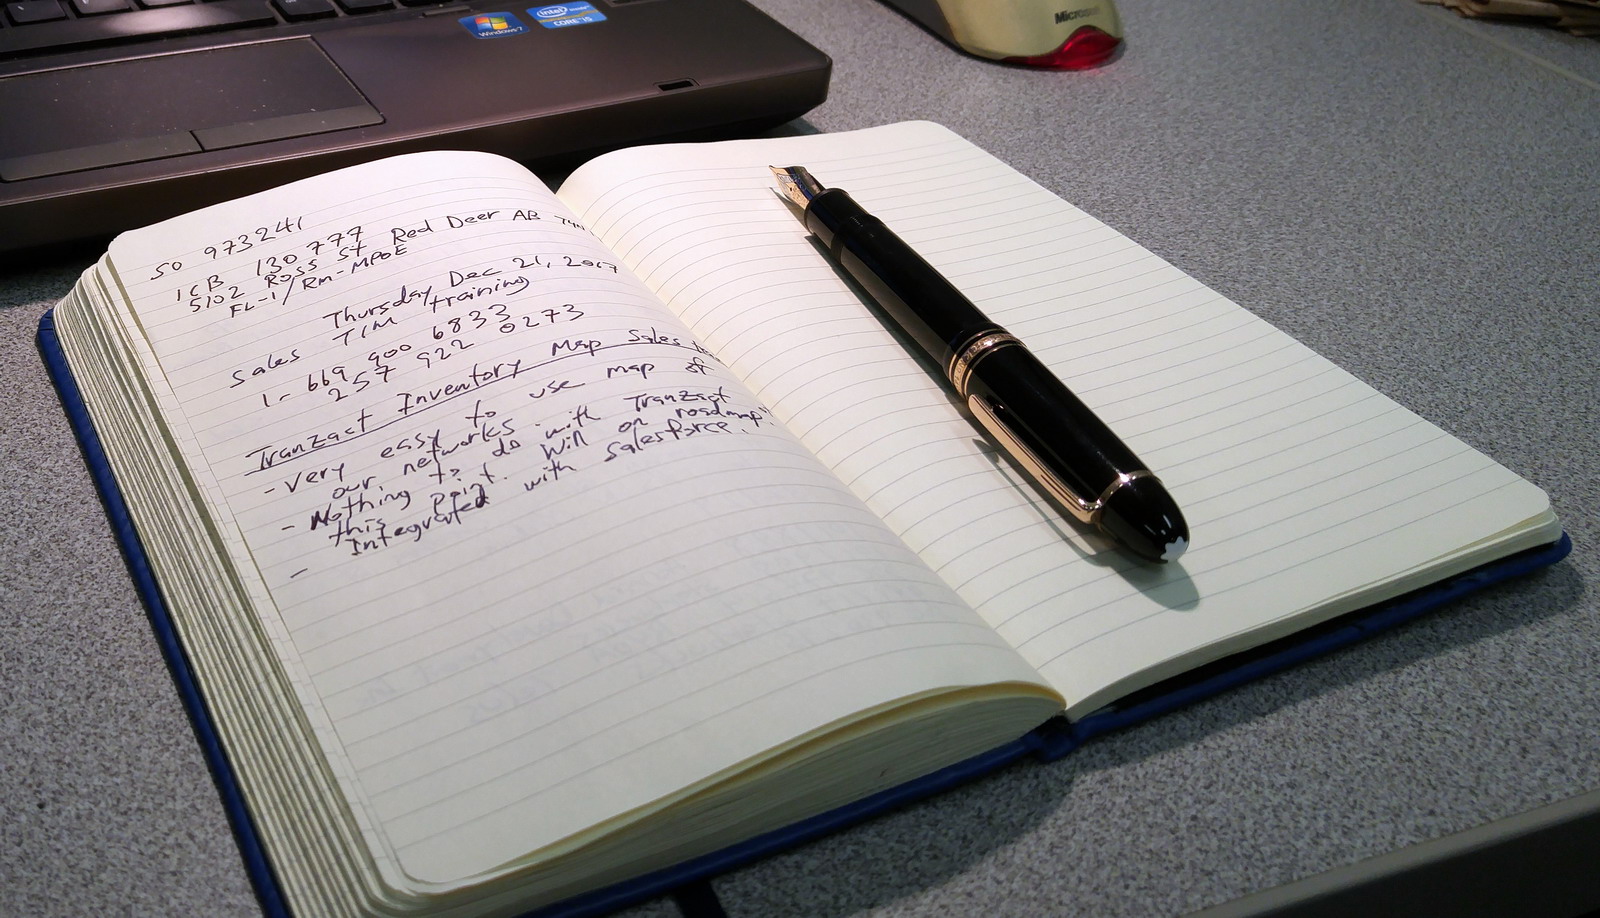 Windows 7
intel inside
CORE i5
Microsoft
SO 973241
ICB 130 777
5102 ROSS St Red Deer AB
FL-1/Rm-MPOE
Thursday Dec 21, 2017
Sales TIM training
1- 669 900 6833
257 922 0273
Tranzact Inventory Map Sales
- Very easy to use map of
our networks
- Nothing to do with Tranzact
this point. Will on roadmap"
Integrated with Salesforce.
-